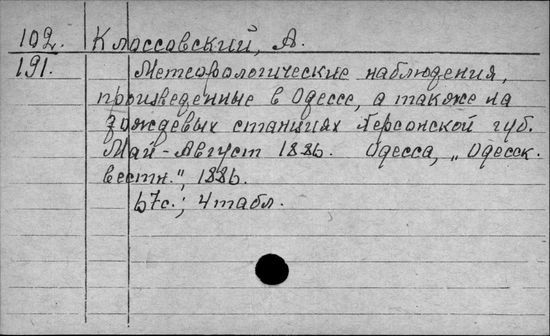 102. Клоссовский, А.
191. Метеорологические наблюдения,
произведенные в Одессе, а также на
дождевых станциях Херсонской губ.
Май-Август 1886. Одесса, „Одесск.
вестн.", 1886.
67с.; 4 табл.